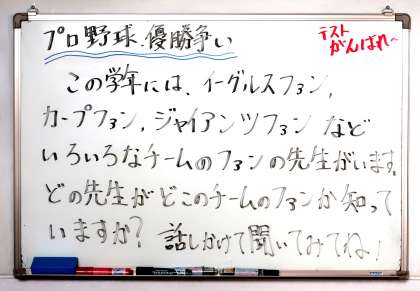 プロ野球、優勝争い
テスト
がんばれ~
この学年には、イーグルスファン、
カープファン、ジャイアンツファンなど
いろいろなチームのファンの先生がいます。
どの先生がどこのチームのファンか知って
いますか？ 話しかけて聞いてみてね！